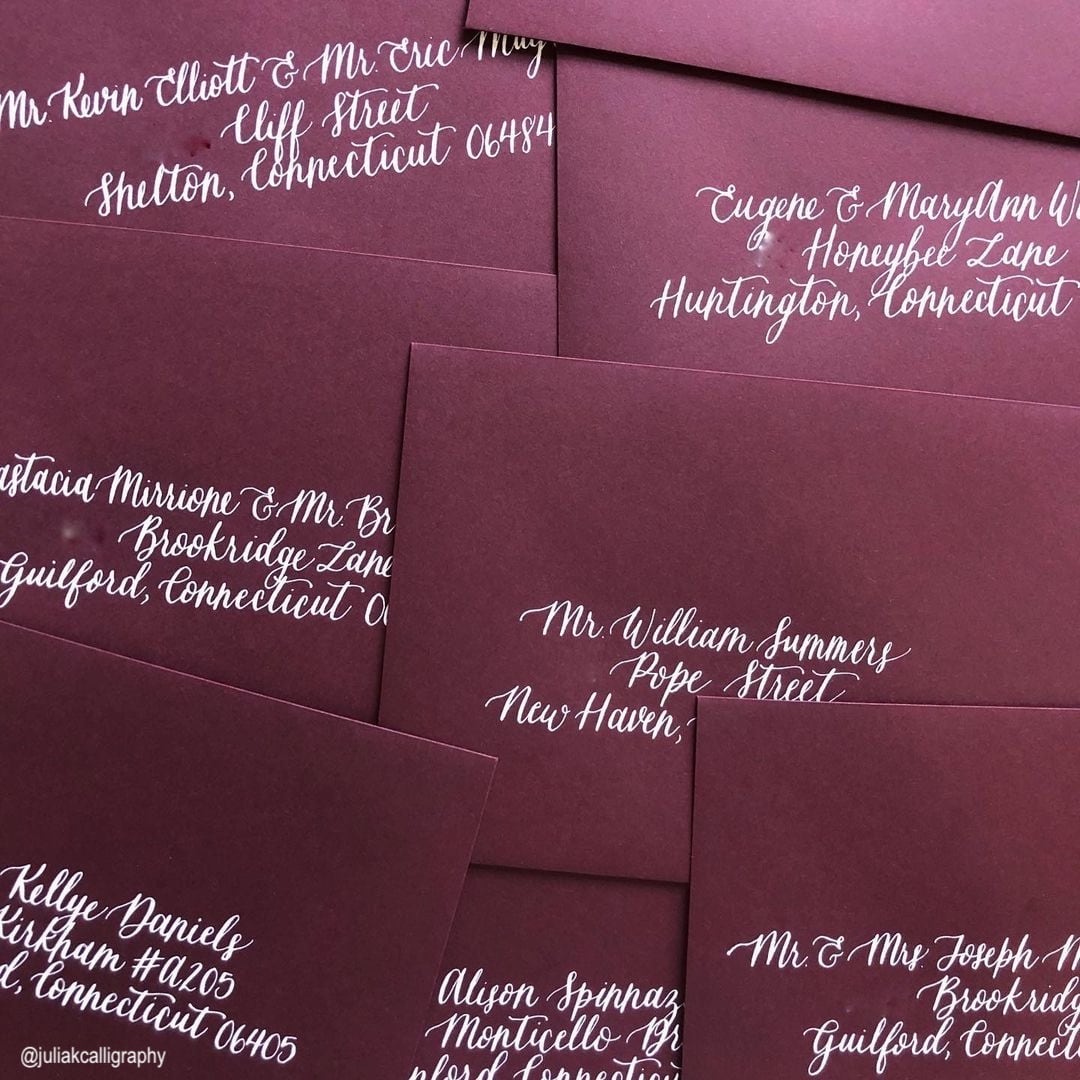 Mr. Kevin Elliott & Mr. Eric
Cliff Street
Shelton, Connecticut 06484
Eugene & MaryAnn
Honeybee Lane
Huntington, Connecticut
Mirrione & Mr.
Brookridge Lane
Guilford, Connecticut
Mr. William Summers
Pope Street
New Haven,
Kellye Daniels
Kirkham #A205
Connecticut 06405
Alison
Monticello
Mr. & Mrs. Joseph
Guilford,
@juliakcalligraphy